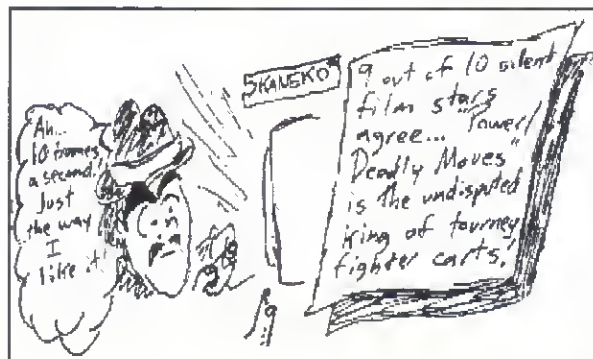 Ah...
10 frames
a second.
Just
the way
I
like it!
KANEKO
9 out of 10 silent
film stars
agree... "Power/
Deadly Moves"
is the undisputed
king of tourney
fighter carts.